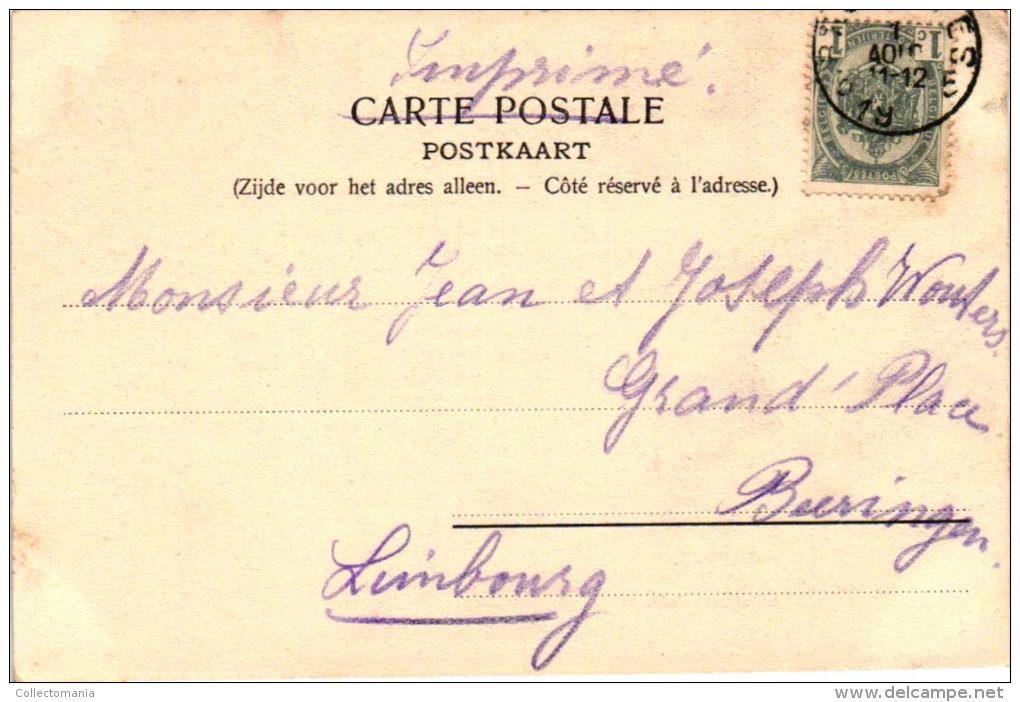 Imprimé.
CARTE POSTALE
POSTKAART
(Zijde voor het adres alleen. — Côté réservé à l'adresse.)
1
AOUT
11-12
1c 1c
POSTES
Monsieur Jean et Joseph Wouters
Grand' Place
Beeringen.
Limbourg
Collectomania
delcampe.net